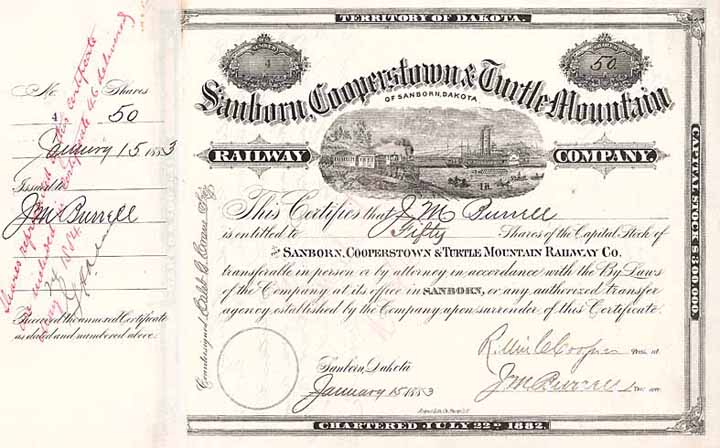 TERRITORY OF DAKOTA.
NUMBER
4
SHARES
50
Sanborn, Cooperstown & Turtle Mountain
OF SANBORN, DAKOTA
RAILWAY COMPANY.
This Certifies that J M Burrell
is entitled to Fifty Shares of the Capital Stock of
THE SANBORN, COOPERSTOWN & TURTLE MOUNTAIN RAILWAY CO.
transferable in person or by attorney in accordance with the By Laws
of the Company at its office in SANBORN, or any authorized transfer
agency established by the Company upon surrender of this Certificate.
R. C. Cooper President
Sanborn, Dakota
January 15 1883
J M Burrell Secretary
CHARTERED JULY 22ND 1882.
CAPITAL STOCK $300,000.
Countersigned
No Shares
4 50
January 15 1883
Issued to
J M Burrell
Received the annexed Certificate
as dated and numbered above.
Shares represented by this certificate
are included in certificate 46 delivered
24 1884